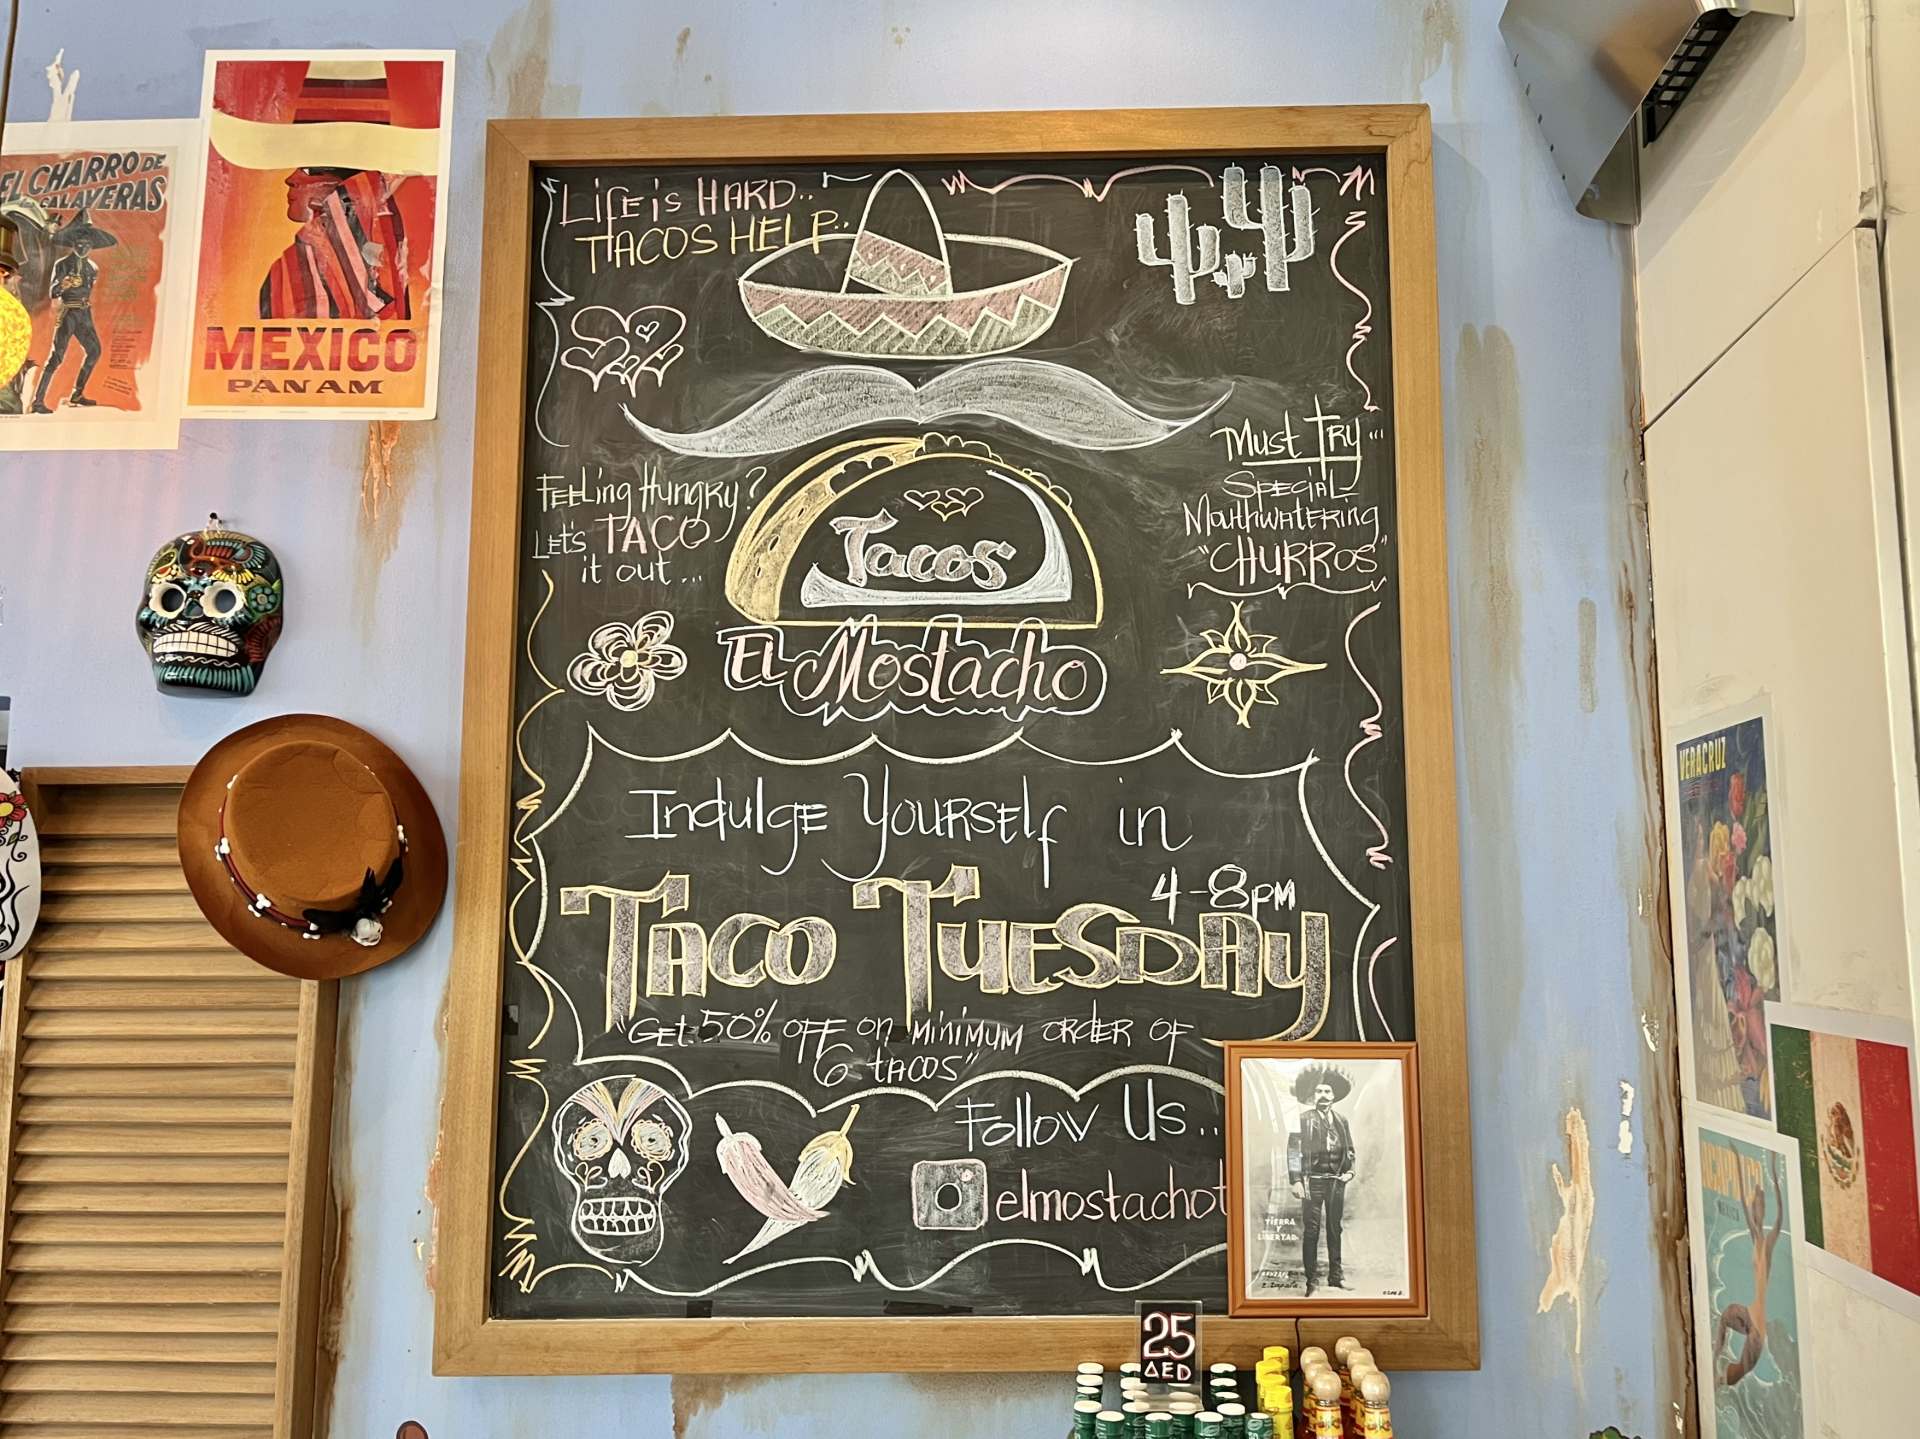 EL CHARRO DE
CALAVERAS
MEXICO
PAN AM
LIFE is HARD..
TACOS HELP..
FEELing Hungry?
LET'S TACO
it out...
Must Try...
SPECiAL
MouthWATERiNg
"CHURROS"
Tacos
EL Mostacho
Indulge YOURSElf in
4-8PM
TACO TUESDAY
"GET 50% OFF on MiNiMUM ORDER OF
6 TACOS"
Follow Us..
elmostachot
TIERRA
Y
LIBERTAD
25
AED
VERACRUZ
MEXICO